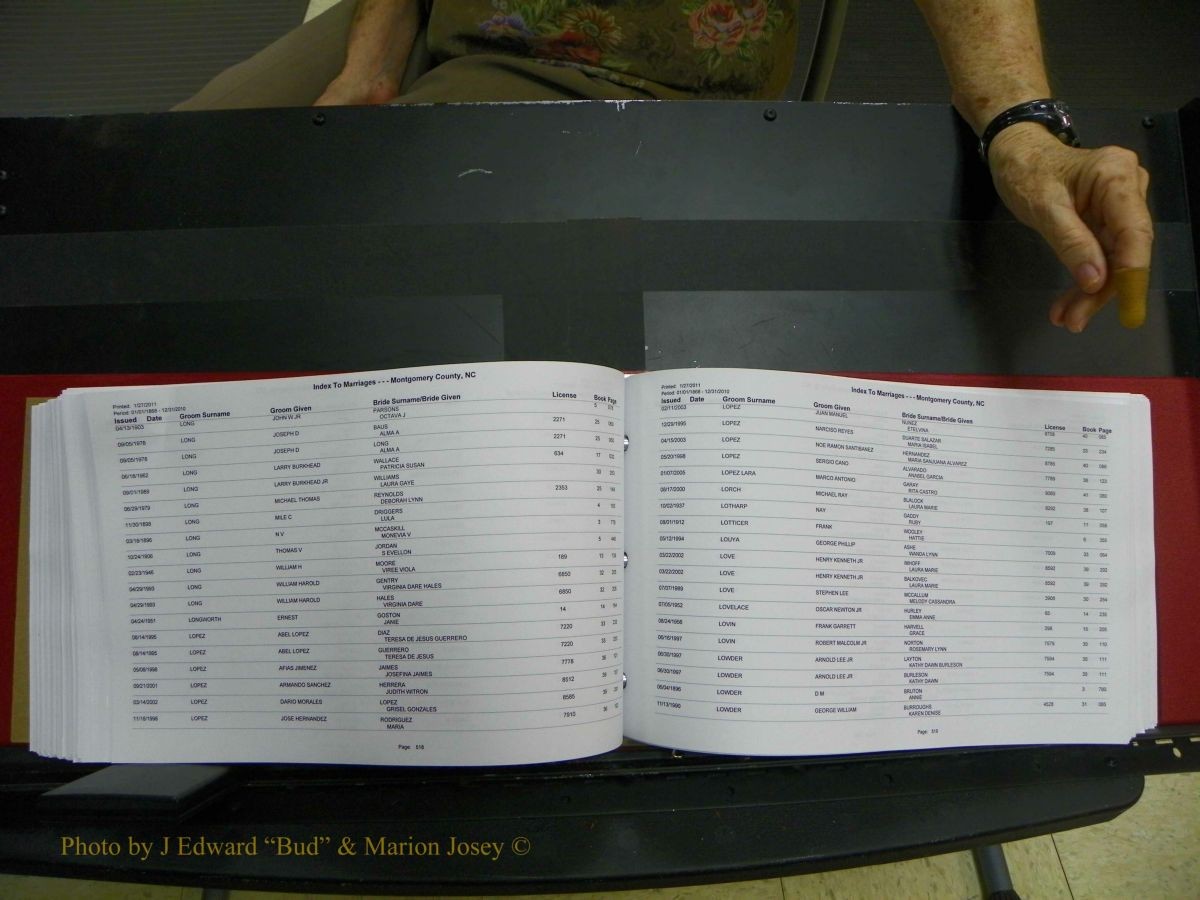 Index To Marriages - - - Montgomery County, NC
Printed: 1/27/2011
Period: 01/01/1868 - 12/31/2010
Issued Date Groom Surname Groom Given Bride Surname/Bride Given License Book Page
04/13/1903 LONG JOHN W JR PARSONS 5
OCTAVA J
09/05/1978 LONG JOSEPH D BAUS 2271 25
ALMA A
09/05/1978 LONG JOSEPH D LONG 2271 25
ALMA A
LONG LARRY BURKHEAD WALLACE 634 17
PATRICIA SUSAN
09/01/1989 LONG LARRY BURKHEAD JR WILLIAMS 30
LAURA GAYE
06/29/1979 LONG MICHAEL THOMAS REYNOLDS 2353 25
DEBORAH LYNN
11/30/1898 LONG MILE C DRIGGERS 4
LULA
03/16/1896 LONG N V MCCASKILL 3
MONEVIA V
10/24/1906 LONG THOMAS V JORDAN 5
S EVELLON
02/23/1946 LONG WILLIAM H MOORE 189 13
VIREE VIOLA
04/29/1993 LONG WILLIAM HAROLD GENTRY 6850 32
VIRGINIA DARE HALES
04/29/1993 LONG WILLIAM HAROLD HALES 6850 32
VIRGINIA DARE
04/24/1951 LONGWORTH ERNEST GOSTON 14 14
JANIE
08/14/1995 LOPEZ ABEL LOPEZ DIAZ 7220 33
TERESA DE JESUS GUERRERO
08/14/1995 LOPEZ ABEL LOPEZ GUERRERO 7220 33
TERESA DE JESUS
05/08/1998 LOPEZ AFIAS JIMENEZ JAIMES 7778 36
JOSEFINA JAIMES
09/21/2001 LOPEZ ARMANDO SANCHEZ HERRERA 8512 39
JUDITH WITRON
03/14/2002 LOPEZ DARIO MORALES LOPEZ 8585 39
GRISEL GONZALES
11/16/1998 LOPEZ JOSE HERNANDEZ RODRIGUEZ 7910 36
MARIA
Page: 518
Index To Marriages - - - Montgomery County, NC
Printed: 1/27/2011
Period: 01/01/1868 - 12/31/2010
Issued Date Groom Surname Groom Given Bride Surname/Bride Given License Book Page
02/11/2003 LOPEZ JUAN MANUEL NUNEZ 8758 40 083
ETELVINA
12/29/1995 LOPEZ NARCISO REYES DUARTE SALAZAR 7285 33 234
MARIA ISABEL
04/15/2003 LOPEZ NOE RAMON SANTIBANEZ HERNANDEZ 8785 40
MARIA SANJUANA ALVAREZ
05/20/1998 LOPEZ SERGIO CANO ALVARADO 7789 36 123
ANABEL GARCIA
01/07/2005 LOPEZ LARA MARCO ANTONIO GARAY 41
RITA CASTRO
09/17/2000 LORCH MICHAEL RAY BLALOCK 8292 38 107
LAURA MARIE
10/02/1937 LOTHARP NAY GADDY 197 11
RUBY
08/01/1912 LOTTICER FRANK WOOLEY 6 358
HATTIE
05/12/1994 LOUYA GEORGE PHILLIP ASHE 7009 33
WANDA LYNN
03/22/2002 LOVE HENRY KENNETH JR IMHOFF 8592 39 292
LAURA MARIE
03/22/2002 LOVE HENRY KENNETH JR BALKOVEC 8592 39 292
LAURA MARIE
07/07/1989 LOVE STEPHEN LEE MCCALLUM 3908 30 254
MELODY CASSANDRA
07/05/1952 LOVELACE OSCAR NEWTON JR HURLEY 14
EMMA ANNE
08/24/1958 LOVIN FRANK GARRETT HARVELL 15
GRACE
06/16/1997 LOVIN ROBERT MALCOLM JR NORTON 7575 35 110
ROSEMARY LYNN
06/30/1997 LOWDER ARNOLD LEE JR LAYTON 7594 35 111
KATHY DAWN BURLESON
06/30/1997 LOWDER ARNOLD LEE JR BURLESON 7594 35 111
KATHY DAWN
06/04/1896 LOWDER D M BRUTON 3
ANNIE
11/13/1990 LOWDER GEORGE WILLIAM BURROUGHS 4528 31
KAREN DENISE
Page: 519
Photo by J Edward “Bud” & Marion Josey ©